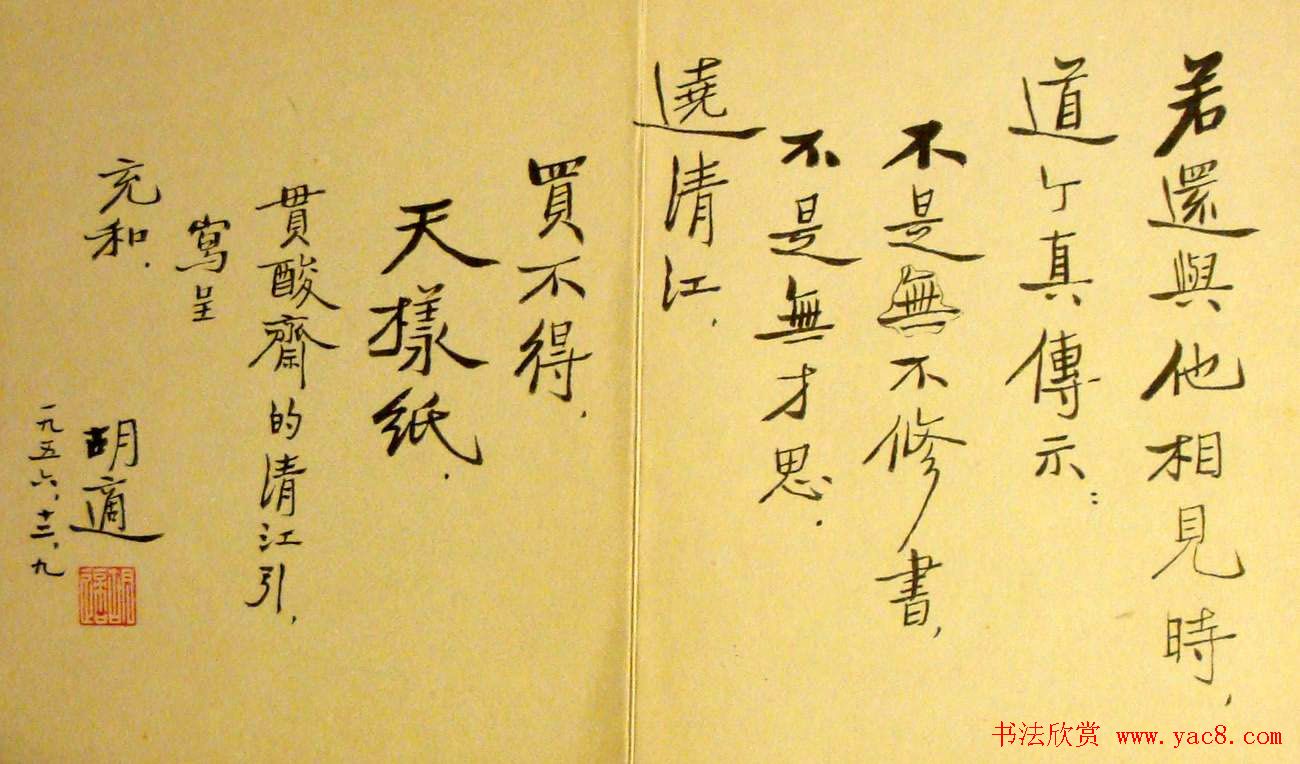 若還與他相見時，
道个真傳示：
不是無不修書，
不是無才思．
遶清江，
買不得，
天樣紙．
貫酸齋的清江引，
寫呈
充和．
胡適
一九五六．十二．九
胡適
书法欣赏 www.yac8.com